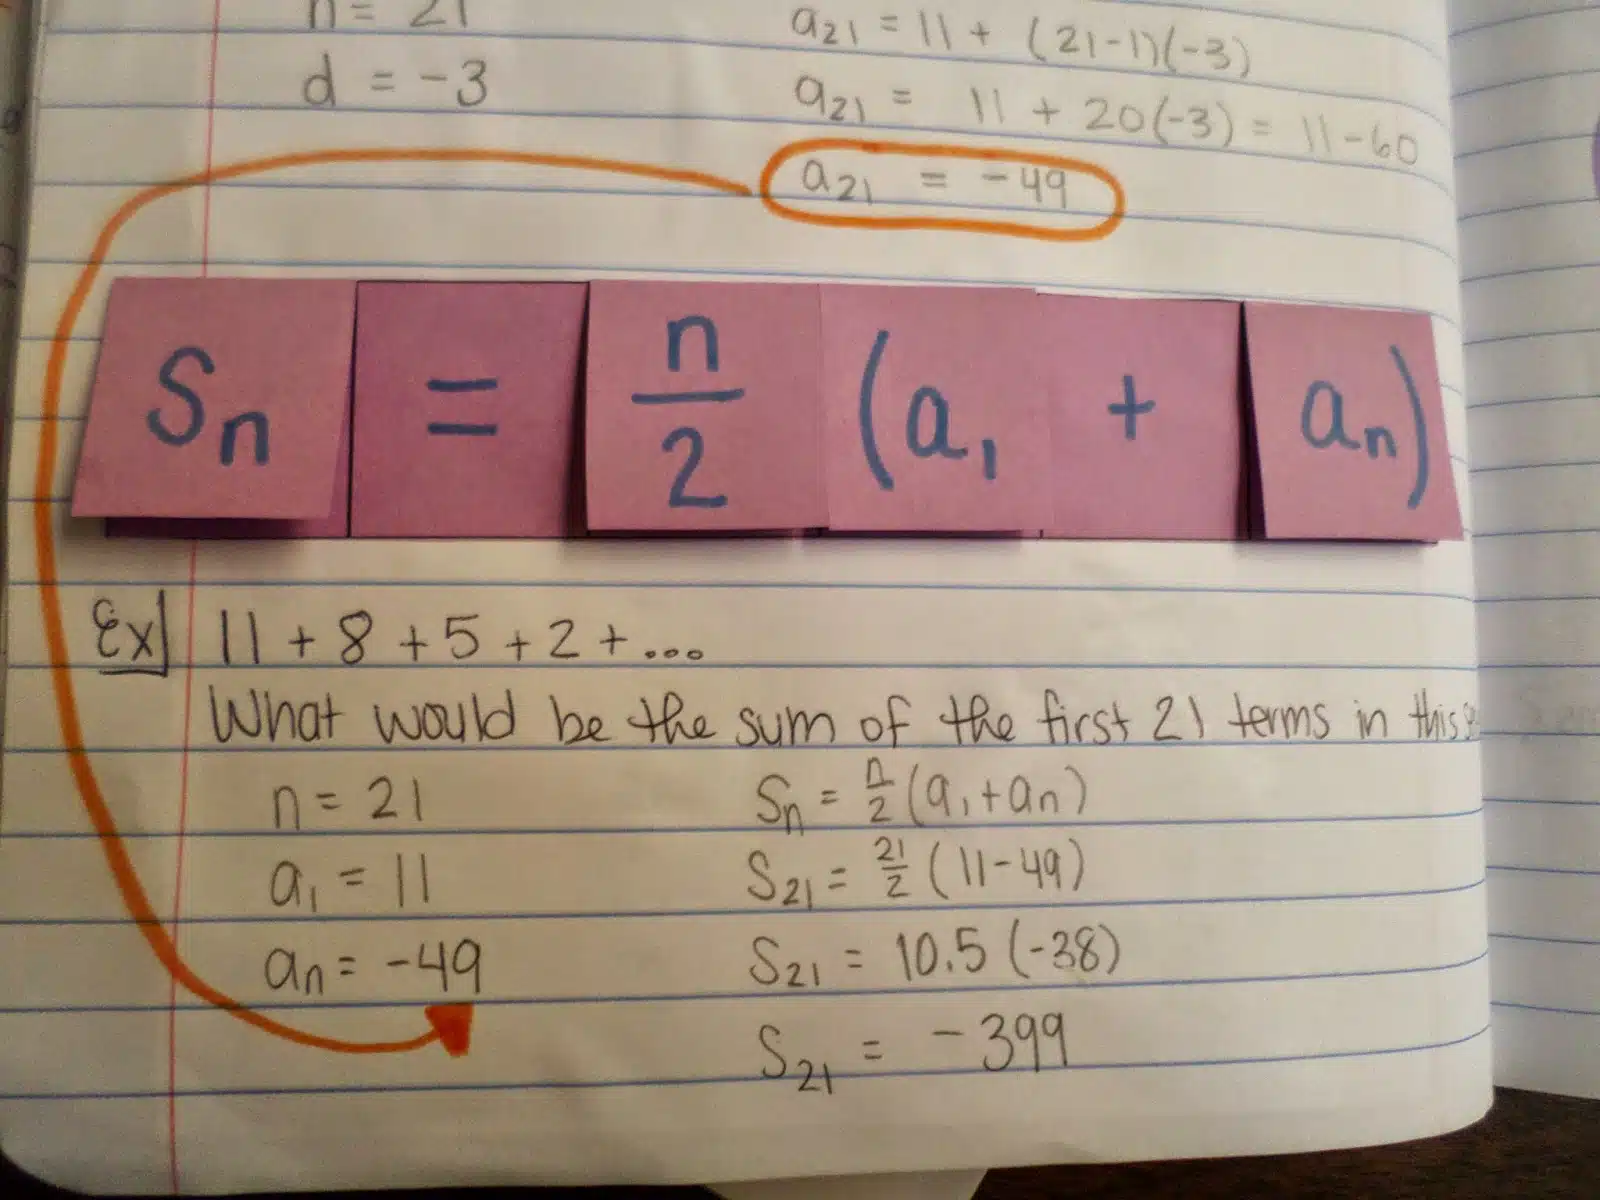 n = 21
d = -3
a₂₁ = 11 + (21-1)(-3)
a₂₁ = 11 + 20(-3) = 11-60
a₂₁ = -49
Sₙ = n/2 (a₁ + aₙ)
Ex] 11 + 8 + 5 + 2 + ...
What would be the sum of the first 21 terms in this
n = 21
a₁ = 11
aₙ = -49
Sₙ = n/2 (a₁ + aₙ)
S₂₁ = 21/2 (11-49)
S₂₁ = 10.5 (-38)
S₂₁ = -399